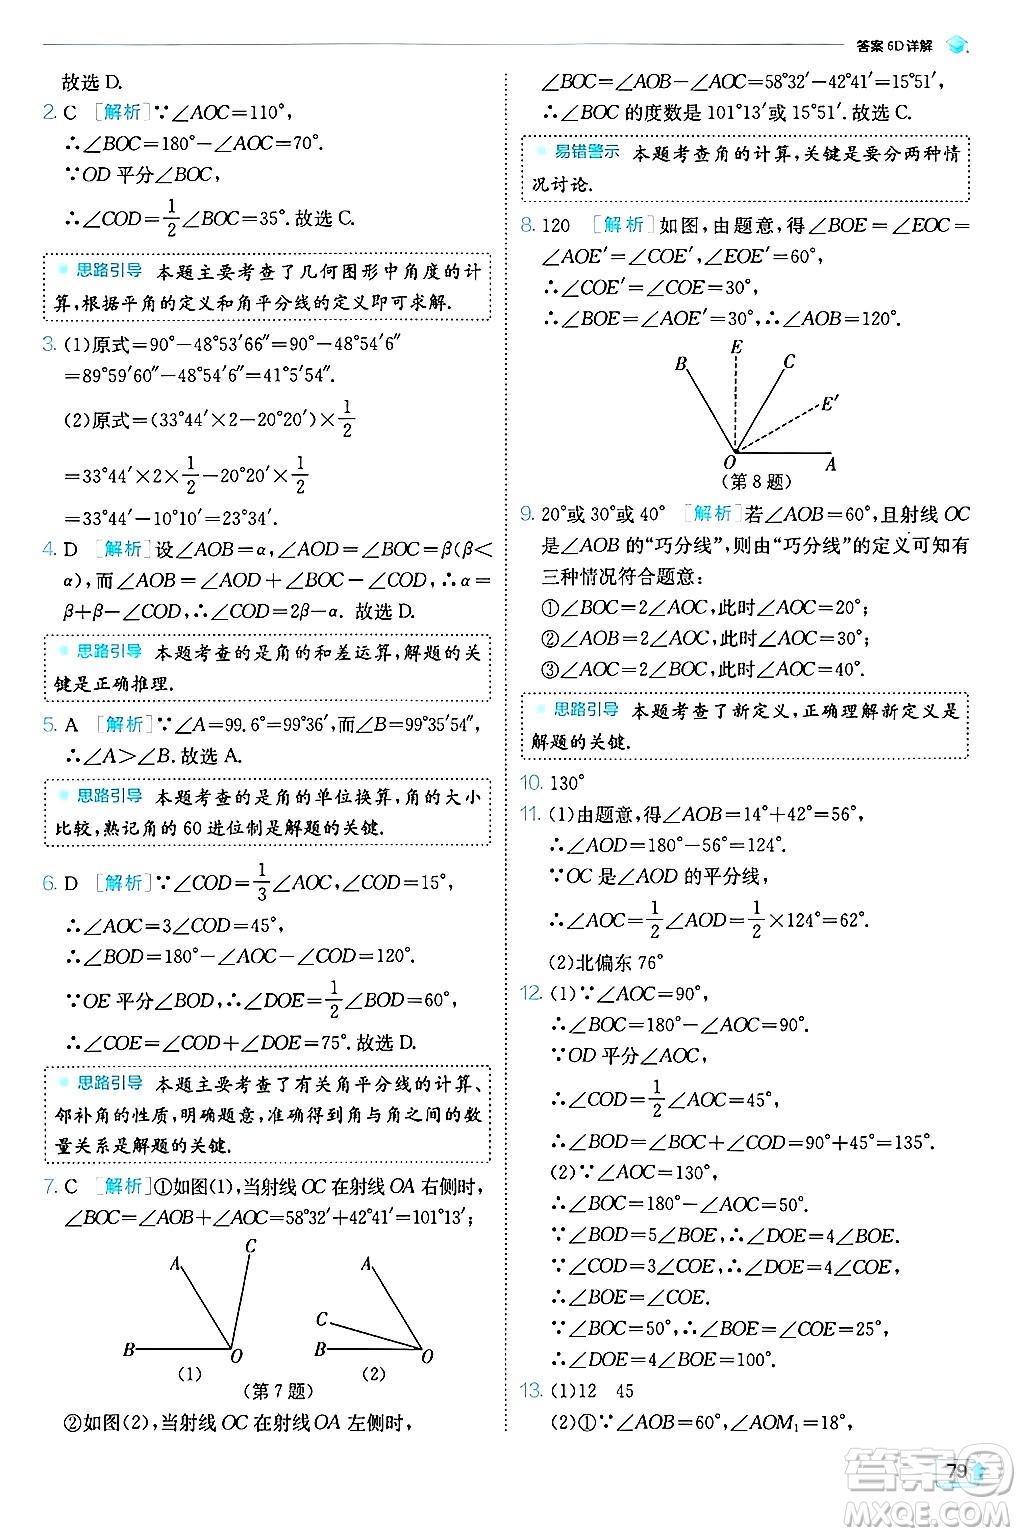 答案 6D详解
故选 D.
2. C [解析]∵∠AOC=110°,
∴∠BOC=180°-∠AOC=70°.
∵OD 平分∠BOC,
∴∠COD=1/2∠BOC=35°. 故选 C.
思路引导 本题主要考查了几何图形中角度的计
算,根据平角的定义和角平分线的定义即可求解.
3. (1)原式=90°-48°53′66″=90°-48°54′6″
=89°59′60″-48°54′6″=41°5′54″.
(2)原式=(33°44′×2-20°20′)×1/2
=33°44′×2×1/2-20°20′×1/2
=33°44′-10°10′=23°34′.
4. D [解析]设∠AOB=α,∠AOD=∠BOC=β(β<
α),而∠AOB=∠AOD+∠BOC-∠COD,∴α=
β+β-∠COD,∴∠COD=2β-α. 故选 D.
思路引导 本题考查的是角的和差运算,解题的关
键是正确推理.
5. A [解析]∵∠A=99.6°=99°36′,而∠B=99°35′54″,
∴∠A>∠B. 故选 A.
思路引导 本题考查的是角的单位换算,角的大小
比较,熟记角的 60 进位制是解题的关键.
6. D [解析]∵∠COD=1/3∠AOC,∠COD=15°,
∴∠AOC=3∠COD=45°,
∴∠BOD=180°-∠AOC-∠COD=120°.
∵OE 平分∠BOD,∴∠DOE=1/2∠BOD=60°,
∴∠COE=∠COD+∠DOE=75°. 故选 D.
思路引导 本题主要考查了有关角平分线的计算、
邻补角的性质,明确题意,准确得到角与角之间的数
量关系是解题的关键.
7. C [解析]①如图(1),当射线 OC 在射线 OA 右侧时,
∠BOC=∠AOB+∠AOC=58°32′+42°41′=101°13′;
A C B O
(1)
A C B O
(2)
(第 7 题)
②如图(2),当射线 OC 在射线 OA 左侧时,
∠BOC=∠AOB-∠AOC=58°32′-42°41′=15°51′.
∴∠BOC 的度数是 101°13′或 15°51′. 故选 C.
易错警示 本题考查角的计算,关键是要分两种情
况讨论.
8. 120 [解析]如图,由题意,得∠BOE=∠EOC=
∠AOE′=∠COE′,∠EOE′=60°,
∴∠COE′=∠COE=30°,
∴∠BOE=∠AOE′=30°,∴∠AOB=120°.
B E C E′ O A
(第 8 题)
9. 20°或 30°或 40° [解析]若∠AOB=60°,且射线 OC
是∠AOB 的“巧分线”,则由“巧分线”的定义可知有
三种情况符合题意:
①∠BOC=2∠AOC,此时∠AOC=20°;
②∠AOB=2∠AOC,此时∠AOC=30°;
③∠AOC=2∠BOC,此时∠AOC=40°.
思路引导 本题考查了新定义,正确理解新定义是
解题的关键.
10. 130°
11. (1)由题意,得∠AOB=14°+42°=56°,
∴∠AOD=180°-56°=124°.
∵OC 是∠AOD 的平分线,
∴∠AOC=1/2∠AOD=1/2×124°=62°.
(2)北偏东 76°
12. (1)∵∠AOC=90°,
∴∠BOC=180°-∠AOC=90°.
∵OD 平分∠AOC,
∴∠COD=1/2∠AOC=45°,
∴∠BOD=∠BOC+∠COD=90°+45°=135°.
(2)∵∠AOC=130°,
∴∠BOC=180°-∠AOC=50°.
∵∠BOD=5∠BOE,∴∠DOE=4∠BOE.
∵∠COD=3∠COE,∴∠DOE=4∠COE,
∴∠BOE=∠COE.
∵∠BOC=50°,∴∠BOE=∠COE=25°,
∴∠DOE=4∠BOE=100°.
13. (1)12 45
(2)①∵∠AOB=60°,∠AOM₁=18°,
79
答案圈
MXQE.COM